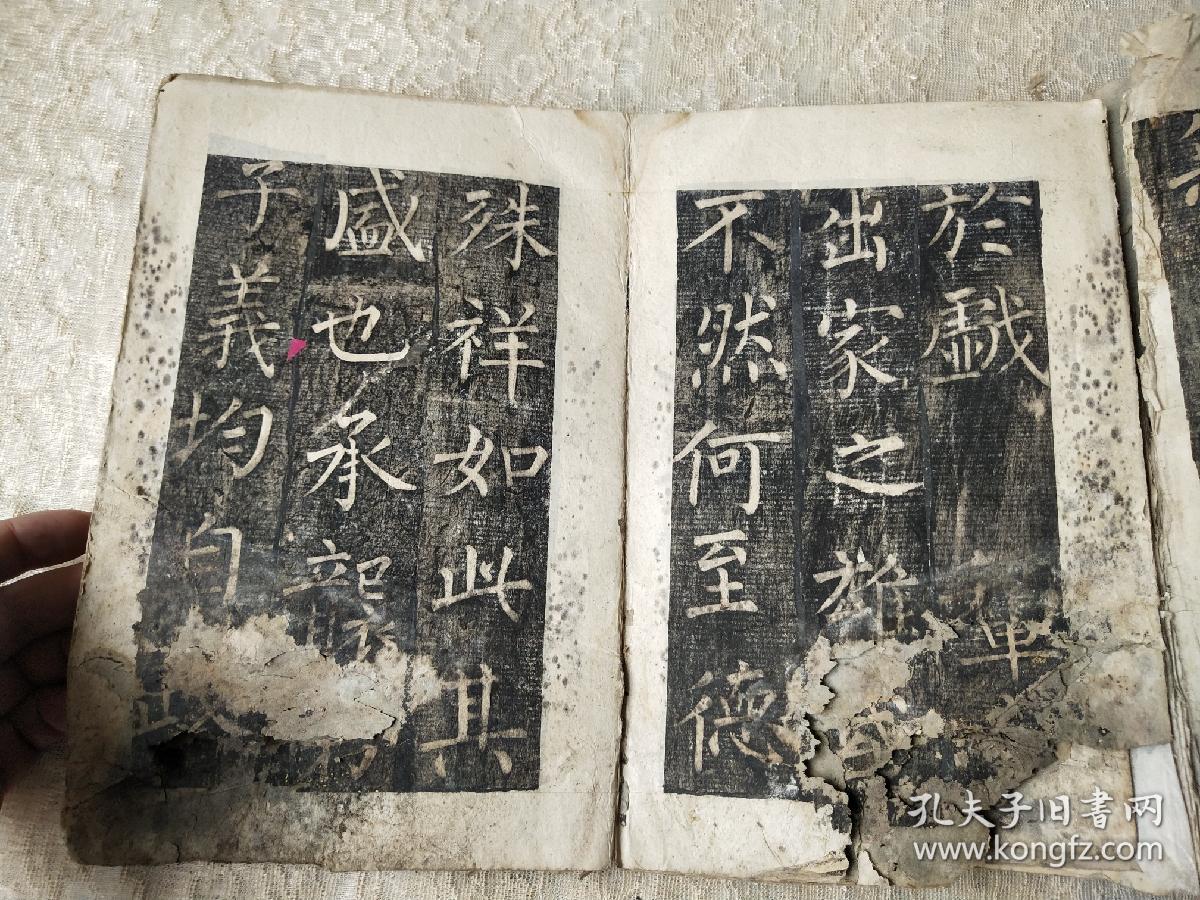 於戲
出家之雄
不然何至德
殊祥如此其
盛也承襲弟
子義均自政
孔夫子旧书网
www.kongfz.com